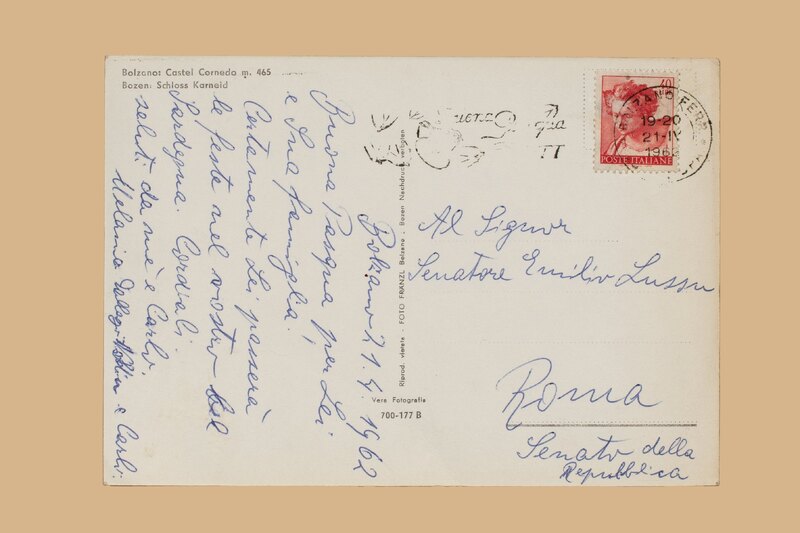 Bolzano: Castel Cornedo m. 465
Bozen: Schloss Karneid
Bolzano 21.4.1962
Buona Pasqua per Lei
e Sua famiglia.
Certamente Lei passerà
le feste nel vostro bel
Sardegna. Cordiali
saluti da me e Carlo.
Melania e Carlo.
Riprod. vietata - FOTO FRANZL Bolzano - Bozen Nachdruck verboten
Vera Fotografia
700-177 B
Buona Pasqua
TT
40
POSTE ITALIANE
BOLZANO FERR
19-20
21-IV
196
Al Signor
Senatore Emilio Lussu
Roma
Senato della
Repubblica